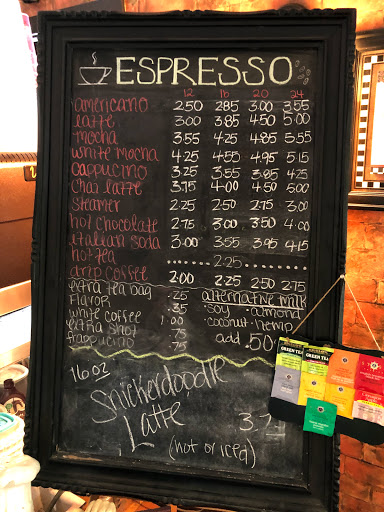 ESPRESSO
12 16 20 24
americano 2.50 2.85 3.00 3.55
latte 3.00 3.85 4.50 5.00
mocha 3.55 4.25 4.85 5.55
white mocha 4.25 4.55 4.95 5.15
cappucino 3.25 3.55 3.85 4.25
chai latte 3.75 4.00 4.50 5.00
steamer 2.25 2.50 2.75 3.00
hot chocolate 2.75 3.00 3.50 4.00
italian soda 3.00 3.55 3.95 4.15
hot tea 2.25
drip coffee 2.00 2.25 2.50 2.75
extra tea bag .25 alternative milk
flavor .35 ·soy ·almond
white coffee 1.00 ·coconut ·hemp
extra shot .75 add .50
frappucino .75
16 oz
Snickerdoodle
Latte 3.7
(hot or iced)
GREEN TEA
GREEN TEA